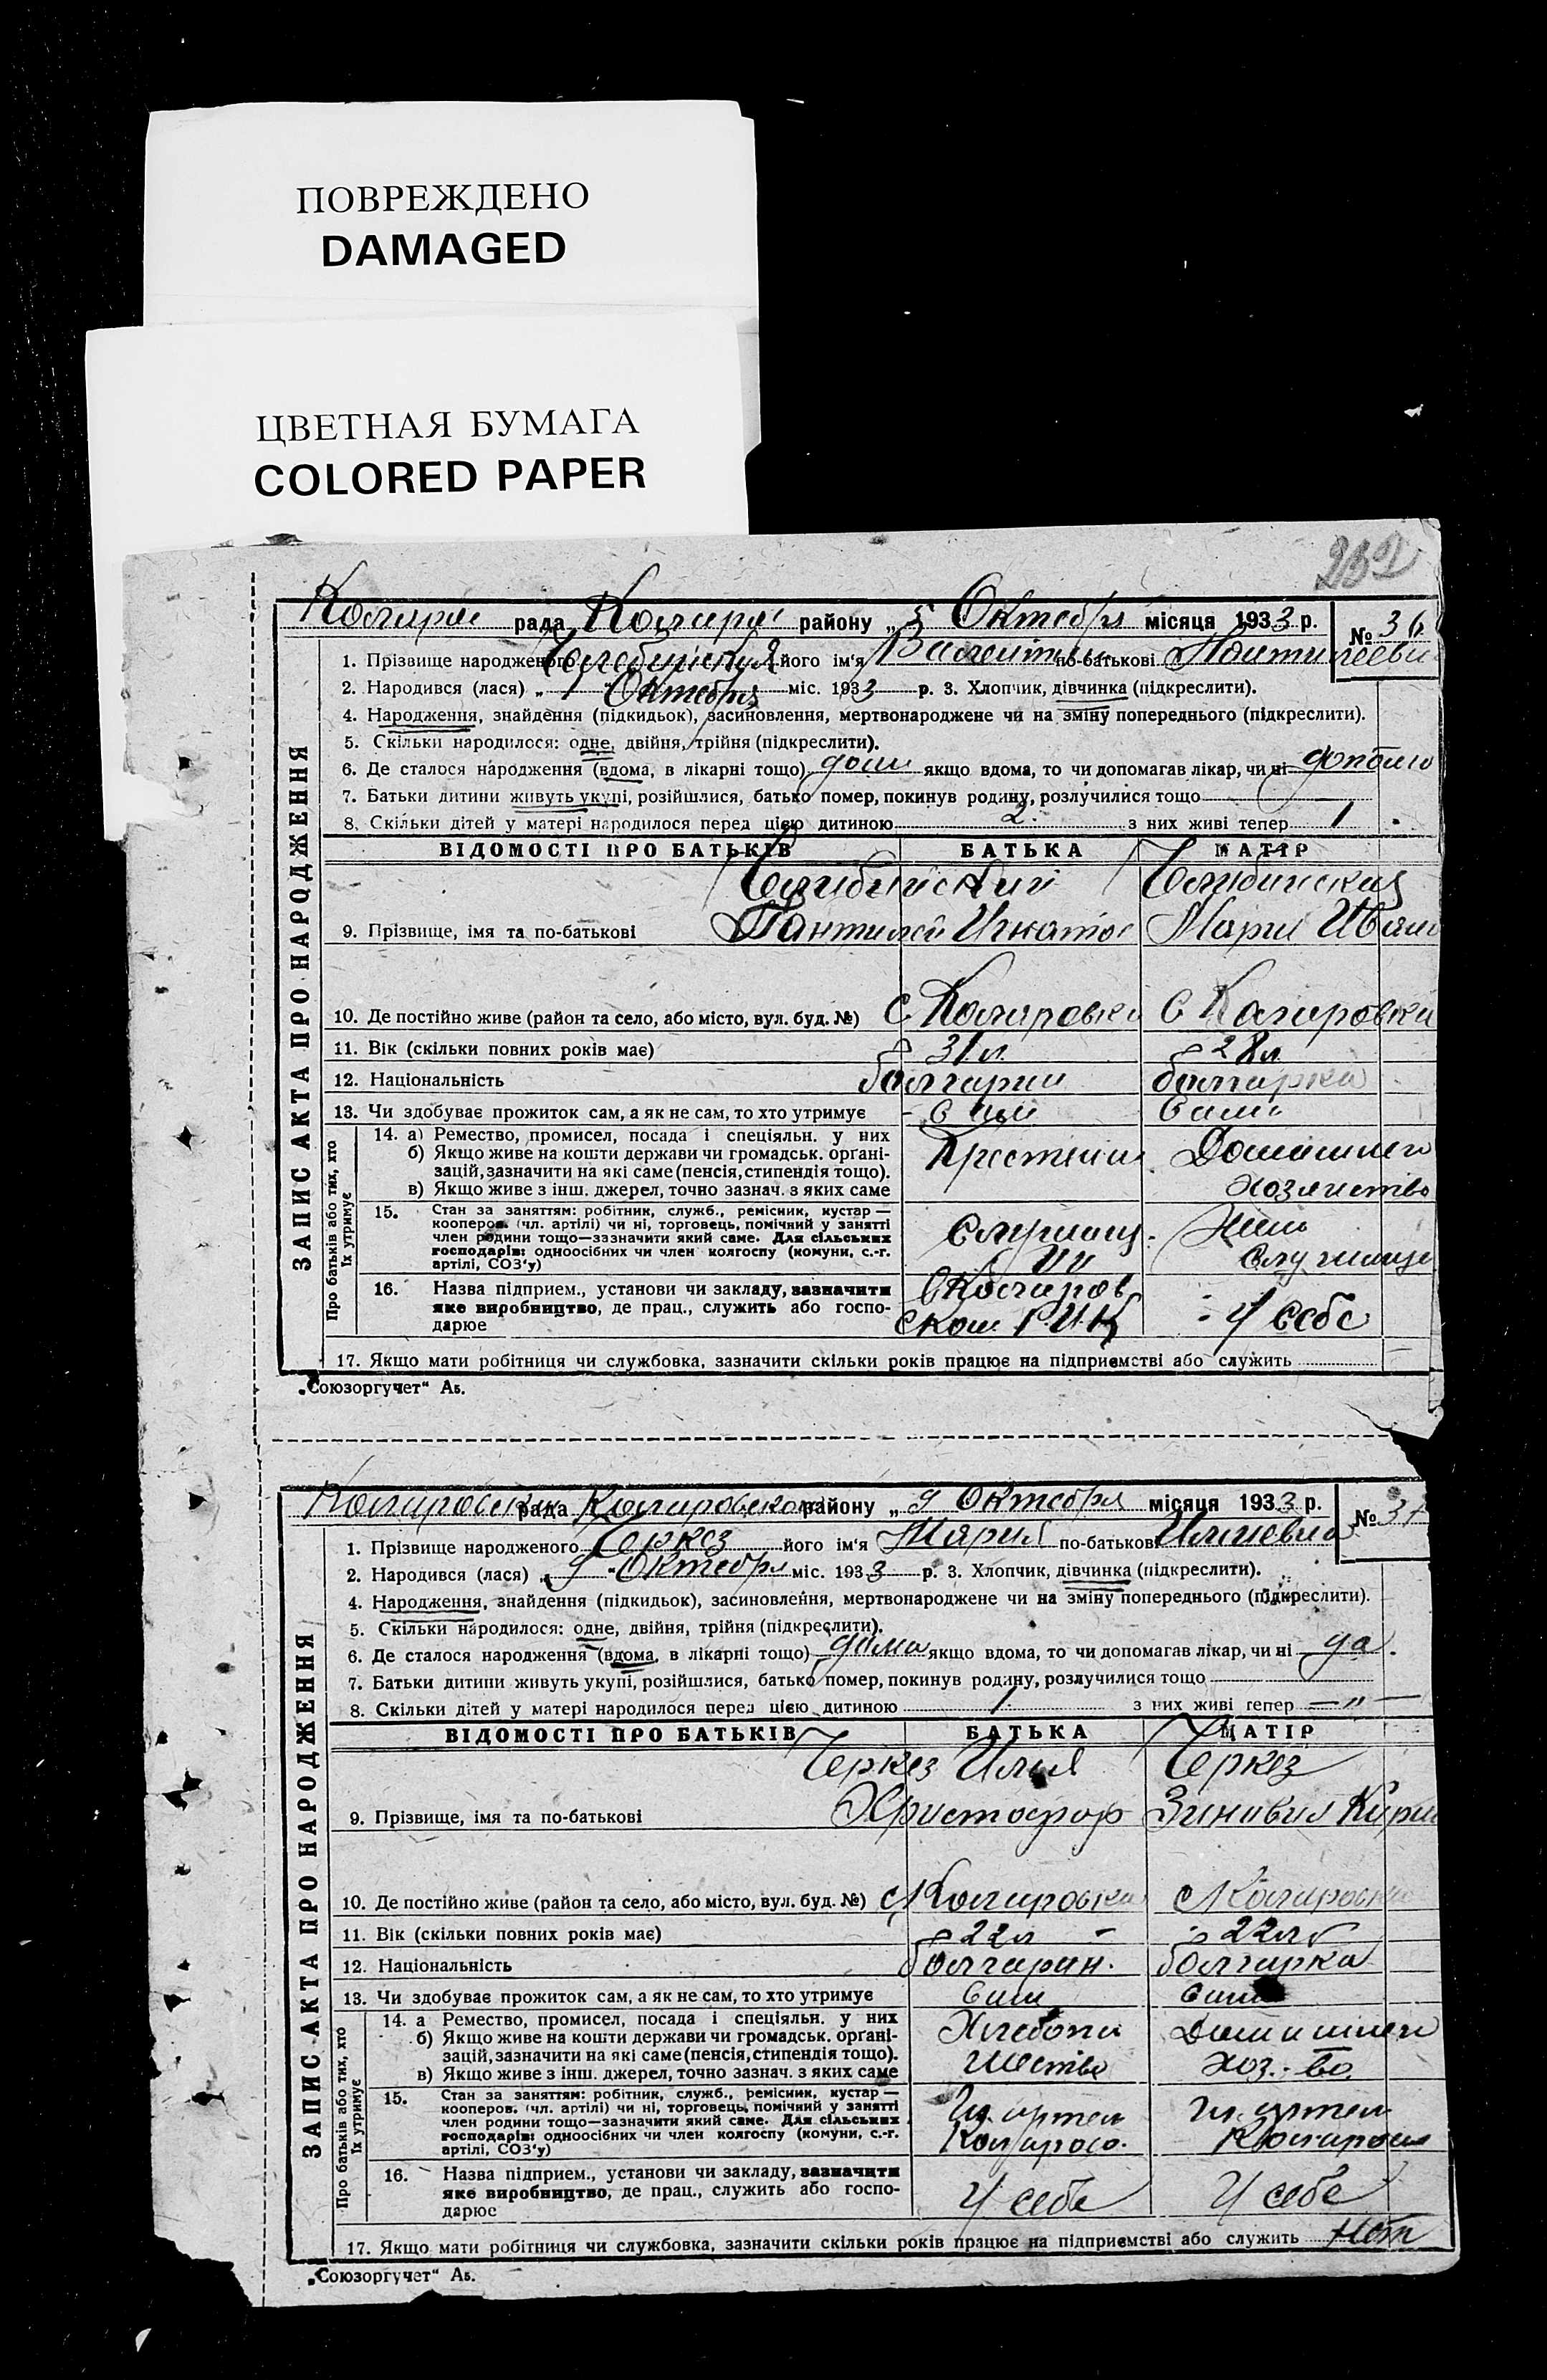 ПОВРЕЖДЕНО
DAMAGED
ЦВЕТНАЯ БУМАГА
COLORED PAPER
232
рада району „5 Октебря місяця 1933 р. № 36
1. Прізвище народженого його ім'я по-батькові
2. Народився (лася) „1" Октебря міс. 1933 р. 3. Хлопчик, дівчинка (підкреслити).
4. Народження, знайдення (підкидьок), засиновлення, мертвонароджене чи на зміну попереднього (підкреслити).
5. Скільки народилося: одне, двійня, трійня (підкреслити).
6. Де сталося народження (вдома, в лікарні тощо) якщо вдома, то чи допомагав лікар, чи ні
7. Батьки дитини живуть укупі, розійшлися, батько помер, покинув родину, розлучилися тощо
8. Скільки дітей у матері народилося перед цією дитиною 2. з них живі тепер 1
ВІДОМОСТІ ПРО БАТЬКІВ БАТЬКА МАТІР
9. Прізвище, імя та по-батькові
10. Де постійно живе (район та село, або місто, вул. буд. №)
11. Вік (скільки повних років має) 31 л. 28 л.
12. Національність болгарин болгарка
13. Чи здобуває прожиток сам, а як не сам, то хто утримує
14. а) Ремество, промисел, посада і спеціяльн. у них
б) Якщо живе на кошти держави чи громадськ. орґані-
зацій, зазначити на які саме (пенсія, стипендія тощо).
в) Якщо живе з інш. джерел, точно зазнач. з яких саме
Домашнего
хозяйство
15. Стан за заняттям: робітник, служб., ремісник, кустар —
кооперов. (чл. артілі) чи ні, торговець, помічний у занятті
член родини тощо—зазначити який саме. Для сільських
господарів: одноосібних чи член колгоспу (комуни, с.-г.
артілі, СОЗ'у)
16. Назва підприєм., установи чи закладу, зазначити
яке виробництво, де прац., служить або госпо-
дарює
ском Р.И.К У себе
17. Якщо мати робітниця чи службовка, зазначити скільки років працює на підприємстві або служить
ЗАПИС АКТА ПРО НАРОДЖЕННЯ
Про батьків або тих, хто
їх утримує
„Союзоргучет" А5.
рада району „9 Октебря місяця 1933 р. № 37
1. Прізвище народженого Черкез його ім'я Мария по-батькові Ильиевна
2. Народився (лася) „9" Октебря міс. 1933 р. 3. Хлопчик, дівчинка (підкреслити).
4. Народження, знайдення (підкидьок), засиновлення, мертвонароджене чи на зміну попереднього (підкреслити).
5. Скільки народилося: одне, двійня, трійня (підкреслити).
6. Де сталося народження (вдома, в лікарні тощо) дома якщо вдома, то чи допомагав лікар, чи ні да
7. Батьки дитини живуть укупі, розійшлися, батько помер, покинув родину, розлучилися тощо
8. Скільки дітей у матері народилося перед цією дитиною 1. з них живі тепер — " —
ВІДОМОСТІ ПРО БАТЬКІВ БАТЬКА МАТІР
Черкез Илья Черкез
9. Прізвище, імя та по-батькові Христофор
10. Де постійно живе (район та село, або місто, вул. буд. №)
11. Вік (скільки повних років має) 22 л 22 л
12. Національність болгарин. болгарка
13. Чи здобуває прожиток сам, а як не сам, то хто утримує
14. а Ремество, промисел, посада і спеціяльн. у них
б) Якщо живе на кошти держави чи громадськ. орґані-
зацій, зазначити на які саме (пенсія, стипендія тощо).
в) Якщо живе з інш. джерел, точно зазнач. з яких саме
хоз.-во
15. Стан за заняттям: робітник, служб., ремісник, кустар —
кооперов. (чл. артілі) чи ні, торговець, помічний у занятті
член родини тощо—зазначити який саме. Для сільських
господарів: одноосібних чи член колгоспу (комуни, с.-г.
артілі, СОЗ'у)
чл. артел чл. артел
16. Назва підприєм., установи чи закладу, зазначити
яке виробництво, де прац., служить або госпо-
дарює
У себе У себе
17. Якщо мати робітниця чи службовка, зазначити скільки років працює на підприємстві або служить нет
ЗАПИС АКТА ПРО НАРОДЖЕННЯ
Про батьків або тих, хто
їх утримує
„Союзоргучет" А5.